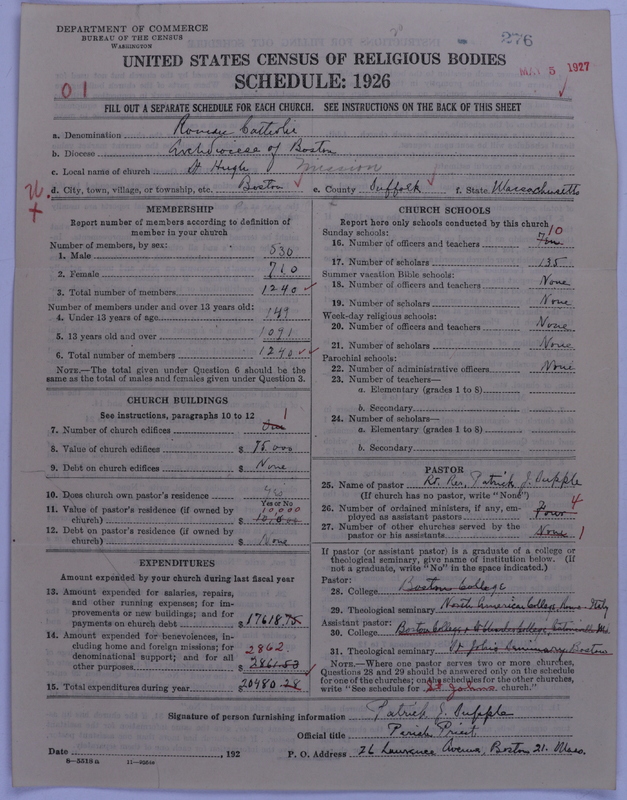 DEPARTMENT OF COMMERCE
BUREAU OF THE CENSUS
WASHINGTON
276
MAY 5 1927
UNITED STATES CENSUS OF RELIGIOUS BODIES
SCHEDULE: 1926
01
FILL OUT A SEPARATE SCHEDULE FOR EACH CHURCH. SEE INSTRUCTIONS ON THE BACK OF THIS SHEET
a. Denomination Roman Catholic
b. Diocese Archdiocese of Boston
c. Local name of church St Hugh Mission
d. City, town, village, or township, etc. Boston e. County Suffolk f. State Massachusetts
MEMBERSHIP
Report number of members according to definition of
member in your church
Number of members, by sex:
1. Male 530
2. Female 710
3. Total number of members 1240
Number of members under and over 13 years old:
4. Under 13 years of age 149
5. 13 years old and over 1091
6. Total number of members 1240
NOTE.—The total given under Question 6 should be the
same as the total of males and females given under Question 3.
CHURCH BUILDINGS
See instructions, paragraphs 10 to 12
7. Number of church edifices One 1
8. Value of church edifices $ 75000
9. Debt on church edifices $ None
10. Does church own pastor's residence Yes
Yes or No
11. Value of pastor's residence (if owned by
church) $ 10,000 10,000
12. Debt on pastor's residence (if owned by
church) $ None
EXPENDITURES
Amount expended by your church during last fiscal year
13. Amount expended for salaries, repairs,
and other running expenses; for im-
provements or new buildings; and for
payments on church debt $ 17618.75
14. Amount expended for benevolences, in-
cluding home and foreign missions; for
denominational support; and for all
other purposes $ 2861.53 2862.
15. Total expenditures during year $ 20480.28
CHURCH SCHOOLS
Report here only schools conducted by this church
Sunday schools:
16. Number of officers and teachers 10
17. Number of scholars 135
Summer vacation Bible schools:
18. Number of officers and teachers None
19. Number of scholars None
Week-day religious schools:
20. Number of officers and teachers None
21. Number of scholars None
Parochial schools:
22. Number of administrative officers None
23. Number of teachers—
a. Elementary (grades 1 to 8)
b. Secondary
24. Number of scholars—
a. Elementary (grades 1 to 8)
b. Secondary
PASTOR
25. Name of pastor Rt. Rev. Patrick J. Supple
(If church has no pastor, write "None")
26. Number of ordained ministers, if any, em-
ployed as assistant pastors Four 4
27. Number of other churches served by the
pastor or his assistants None 1
If pastor (or assistant pastor) is a graduate of a college or
theological seminary, give name of institution below. (If
not a graduate, write "No" in the space indicated.)
Pastor:
28. College Boston College
29. Theological seminary North American College, Rome Italy
Assistant pastor:
30. College Boston College & St Charles College, Catonsville Md.
31. Theological seminary St Johns Seminary Boston
NOTE.—Where one pastor serves two or more churches,
Questions 28 and 29 should be answered only on the schedule
for one of the churches; on the schedules for the other churches,
write "See schedule for St Johns church."
Signature of person furnishing information Patrick J. Supple
Official title Parish Priest
Date , 192 P. O. Address 26 Lawrence Avenue, Boston 21. Mass.
8-5518a 11-9505